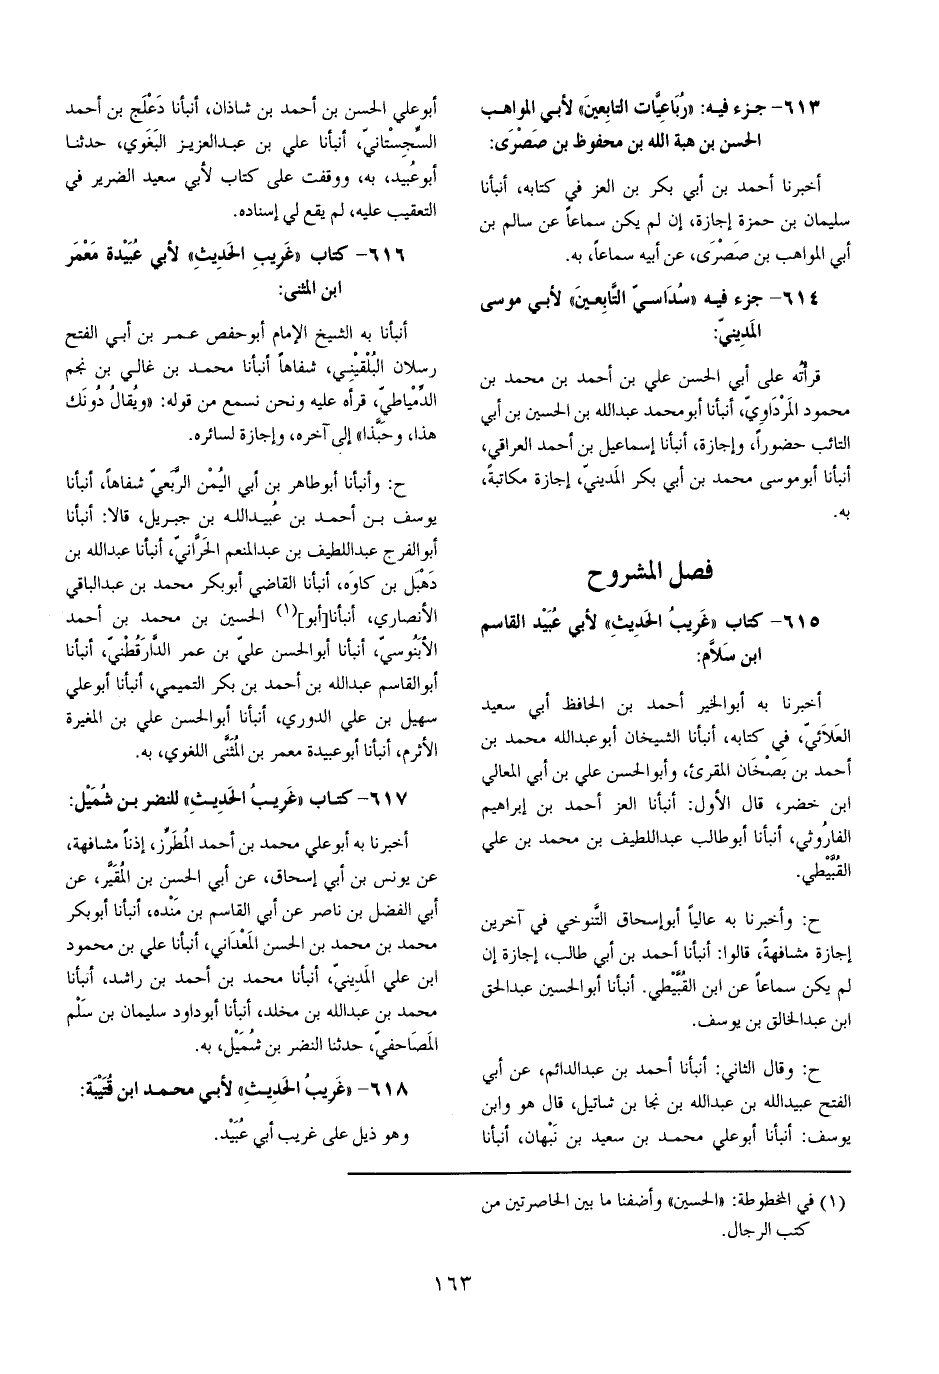 ٦١٣- جزء فيه: «رُبَاعِيَّات التابعين» لأبي المواهب
الحسن بن هبة الله بن محفوظ بن صَصْرَى:
أخبرنا أحمد بن أبي بكر بن العز في كتابه، أنبأنا
سليمان بن حمزة إجازة، إن لم يكن سماعاً عن سالم بن
أبي المواهب بن صَصْرَى، عن أبيه سماعاً، به.
٦١٤- جزء فيه «سُدَاسيّ التَّابِعين» لأبي موسى
المَدِينيّ:
قرأتُه على أبي الحسن علي بن أحمد بن محمد بن
محمود المَرْدَاوِيّ، أنبأنا أبومحمد عبدالله بن الحسين بن أبي
التائب حضوراً، وإجازة، أنبأنا إسماعيل بن أحمد العراقي،
أنبأنا أبوموسى محمد بن أبي بكر المَدينيّ، إجازة مكاتبةً،
به.
فصل المشروح
٦١٥- كتاب «غَرِيبُ الحَديث» لأبي عُبَيْد القاسم
ابن سَلاَّم:
أخبرنا به أبوالخير أحمد بن الحافظ أبي سعيد
العَلَائيّ، في كتابه، أنبأنا الشيخان أبوعبدالله محمد بن
أحمد بن بَصْخَان المقرئ، وأبوالحسن علي بن أبي المعالي
ابن خضر، قال الأول: أنبأنا العز أحمد بن إبراهيم
الفارُوثي، أنبأنا أبوطالب عبداللطيف بن محمد بن علي
القُبَّيْطي.
ح: وأخبرنا به عالياً أبوإسحاق التَّنوخي في آخرين
إجازة مشافهةً، قالوا: أنبأنا أحمد بن أبي طالب، إجازة إن
لم يكن سماعاً عن ابن القُبَّيْطي. أنبأنا أبوالحسين عبدالحق
ابن عبدالخالق بن يوسف.
ح: وقال الثاني: أنبأنا أحمد بن عبدالدائم، عن أبي
الفتح عبيدالله بن عبدالله بن نجا بن شاتيل، قال هو وابن
يوسف: أنبأنا أبوعلي محمد بن سعيد بن نَبْهان، أنبأنا
أبوعلي الحسن بن أحمد بن شاذان، أنبأنا دَعْلَج بن أحمد
السِّجِسْتانيّ، أنبأنا علي بن عبدالعزيز البَغَوي، حدثنا
أبوعُبيد، به، ووقفت على كتاب لأبي سعيد الضرير في
التعقيب عليه، لم يقع لي إسناده.
٦١٦- كتاب «غَرِيب الحَديث» لأبي عُبَيْدة مَعْمَر
ابن المثنى:
أنبأنا به الشيخ الإمام أبوحفص عمر بن أبي الفتح
رسلان البُلْقِيْنِي، شفاهاً أنبأنا محمد بن غالي بن نجم
الدِّمْياطيّ، قرأه عليه ونحن نسمع من قوله: «ويُقالُ دُونَك
هذا، وحَبَّذا» إلى آخره، وإجازة لسائره.
ح: وأنبأنا أبوطاهر بن أبي اليُمْن الرَّبَعيّ شفاهاً، أنبأنا
يوسف بن أحمد بن عُبيدالله بن جبريل، قالا: أنبأنا
أبوالفرج عبداللطيف بن عبدالمنعم الحَرَّانيّ، أنبأنا عبدالله بن
دَهْبَل بن كاوَه، أنبأنا القاضي أبوبكر محمد بن عبدالباقي
الأنصاري، أنبأنا[أبو](١) الحسين بن محمد بن أحمد
الأبَنُوسيّ، أنبأنا أبوالحسن عليّ بن عمر الدَّارَقُطْنيّ، أنبأنا
أبوالقاسم عبدالله بن أحمد بن بكر التميمي، أنبأنا أبوعلي
سهيل بن علي الدوري، أنبأنا أبوالحسن علي بن المغيرة
الأثرم، أنبأنا أبوعبيدة معمر بن المُثَنَّى اللغوي، به.
٦١٧- كتاب «غَرِيبُ الحَديث» للنضر بن شُمَيْل:
أخبرنا به أبوعلي محمد بن أحمد المُطَرِّز، إذناً مشافهة،
عن يونس بن أبي إسحاق، عن أبي الحسن بن المُقَيَّر، عن
أبي الفضل بن ناصر عن أبي القاسم بن مَنْده، أنبأنا أبوبكر
محمد بن محمد بن الحسن المَعْدَاني، أنبأنا علي بن محمود
ابن علي المَدِينيّ، أنبأنا محمد بن أحمد بن راشد، أنبأنا
محمد بن عبدالله بن مخلد، أنبأنا أبوداود سليمان بن سَلْم
المَصَاحفيّ، حدثنا النضر بن شُمَيْل، به.
٦١٨- «غَرِيبُ الحَديث» لأبي محمد ابن قُتَيْبَة:
وهو ذيل على غريب أبي عُبَيْد.
(١) في المخطوطة: «الحسين» وأضفنا ما بين الحاصرتين من
كتب الرجال.
١٦٣